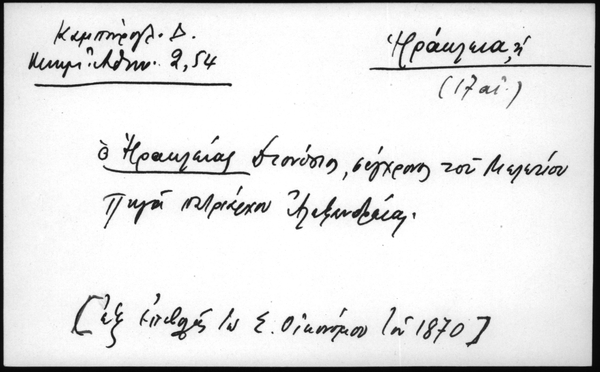 Καμπούρογλ. Δ.
Μνημ. Αθην. 2, 54
Ἡράκλεια, ἡ
(17 αἰ.)
ὁ Ἡρακλείας Διονύσιος, σύγχρονος τοῦ Μελετίου
Πηγᾶ πατριάρχου Ἀλεξανδρείας.
[ἐξ ἐπιστολῆς Σ. Οἰκονόμου τοῦ 1870]